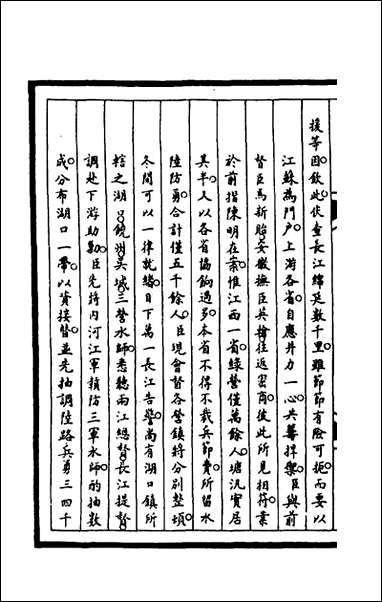 援等因欽此伏查長江綿延數千里雖節節有險可扼而要以
江蘇為門戶上游各省自應并力一心共籌捍禦臣與前
督臣馬新貽安徽撫臣英翰往返函商彼此所見相符業
於前摺陳明在案惟江西一省綠營僅萬餘人塘汛實居
其半又以各省協餉過多本省不得不裁兵節費所留水
陸防勇合計僅五千餘人臣現會督各營鎮將分別整頓
冬間可以一律就緒目下萬一長江告警尚有湖口鎮所
轄之湖口饒州吳城三營水師悉聽兩江總督長江提督
調赴下游助勦臣先將內河江軍精防三軍水師酌抽數
成分布湖口一帶以資接替並先抽調陸路兵勇三四千